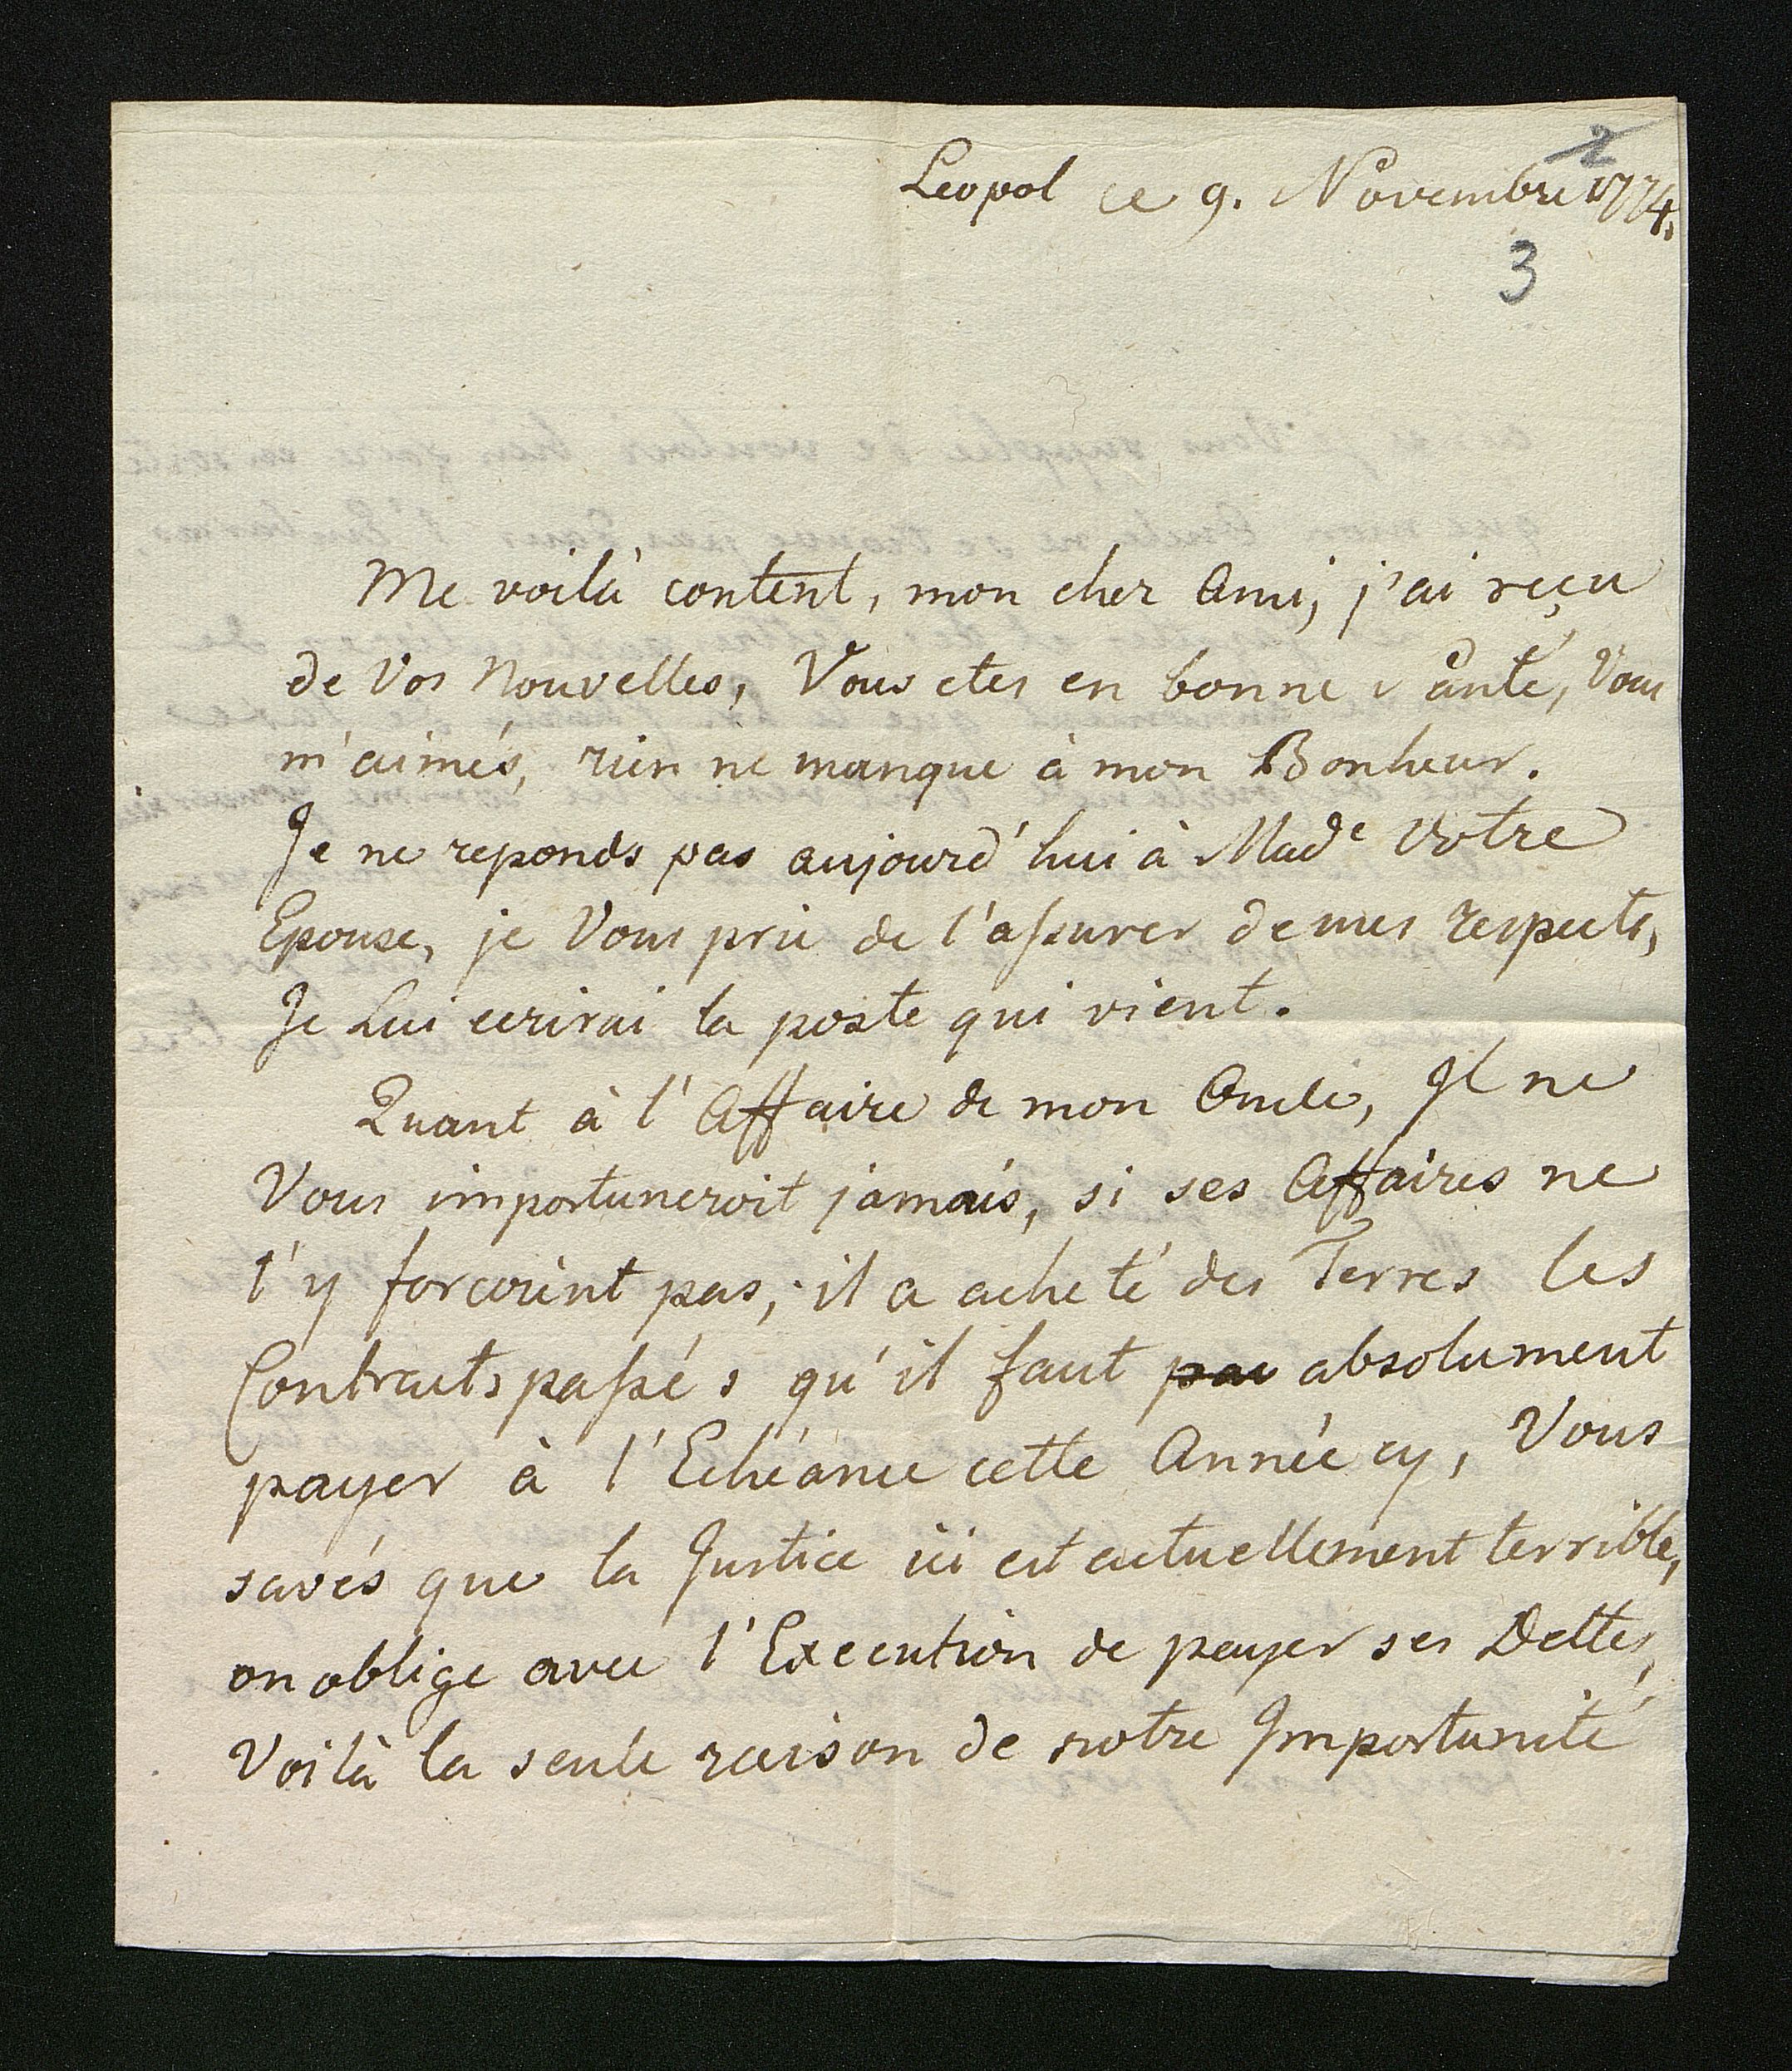 2
Leopol ce 9. Novembre 1774.
3
Me voilà content, mon cher Ami, j'ai reçu
de Vos Nouvelles, Vous etes en bonne santé, Vous
m'aimés, rien ne manque à mon Bonheur.
Je ne reponds pas aujourd'hui à Made Votre
Epouse, je Vous prie de l'assurer de mes respects,
Je Lui ecrirai la poste qui vient.
Quant à l'Affaire de mon Oncle, Il ne
Vous importuneroit jamais, si ses Affaires ne
l'y forcoint pas, il a acheté des Terres les
Contracts passés qu'il faut pai absolument
payer à l'Echéance cette Année cy, Vous
savés que la Justice ici est actuellement terrible,
on oblige avec l'Execution de payer ses Dettes,
Voilà la seule raison de notre Importunité